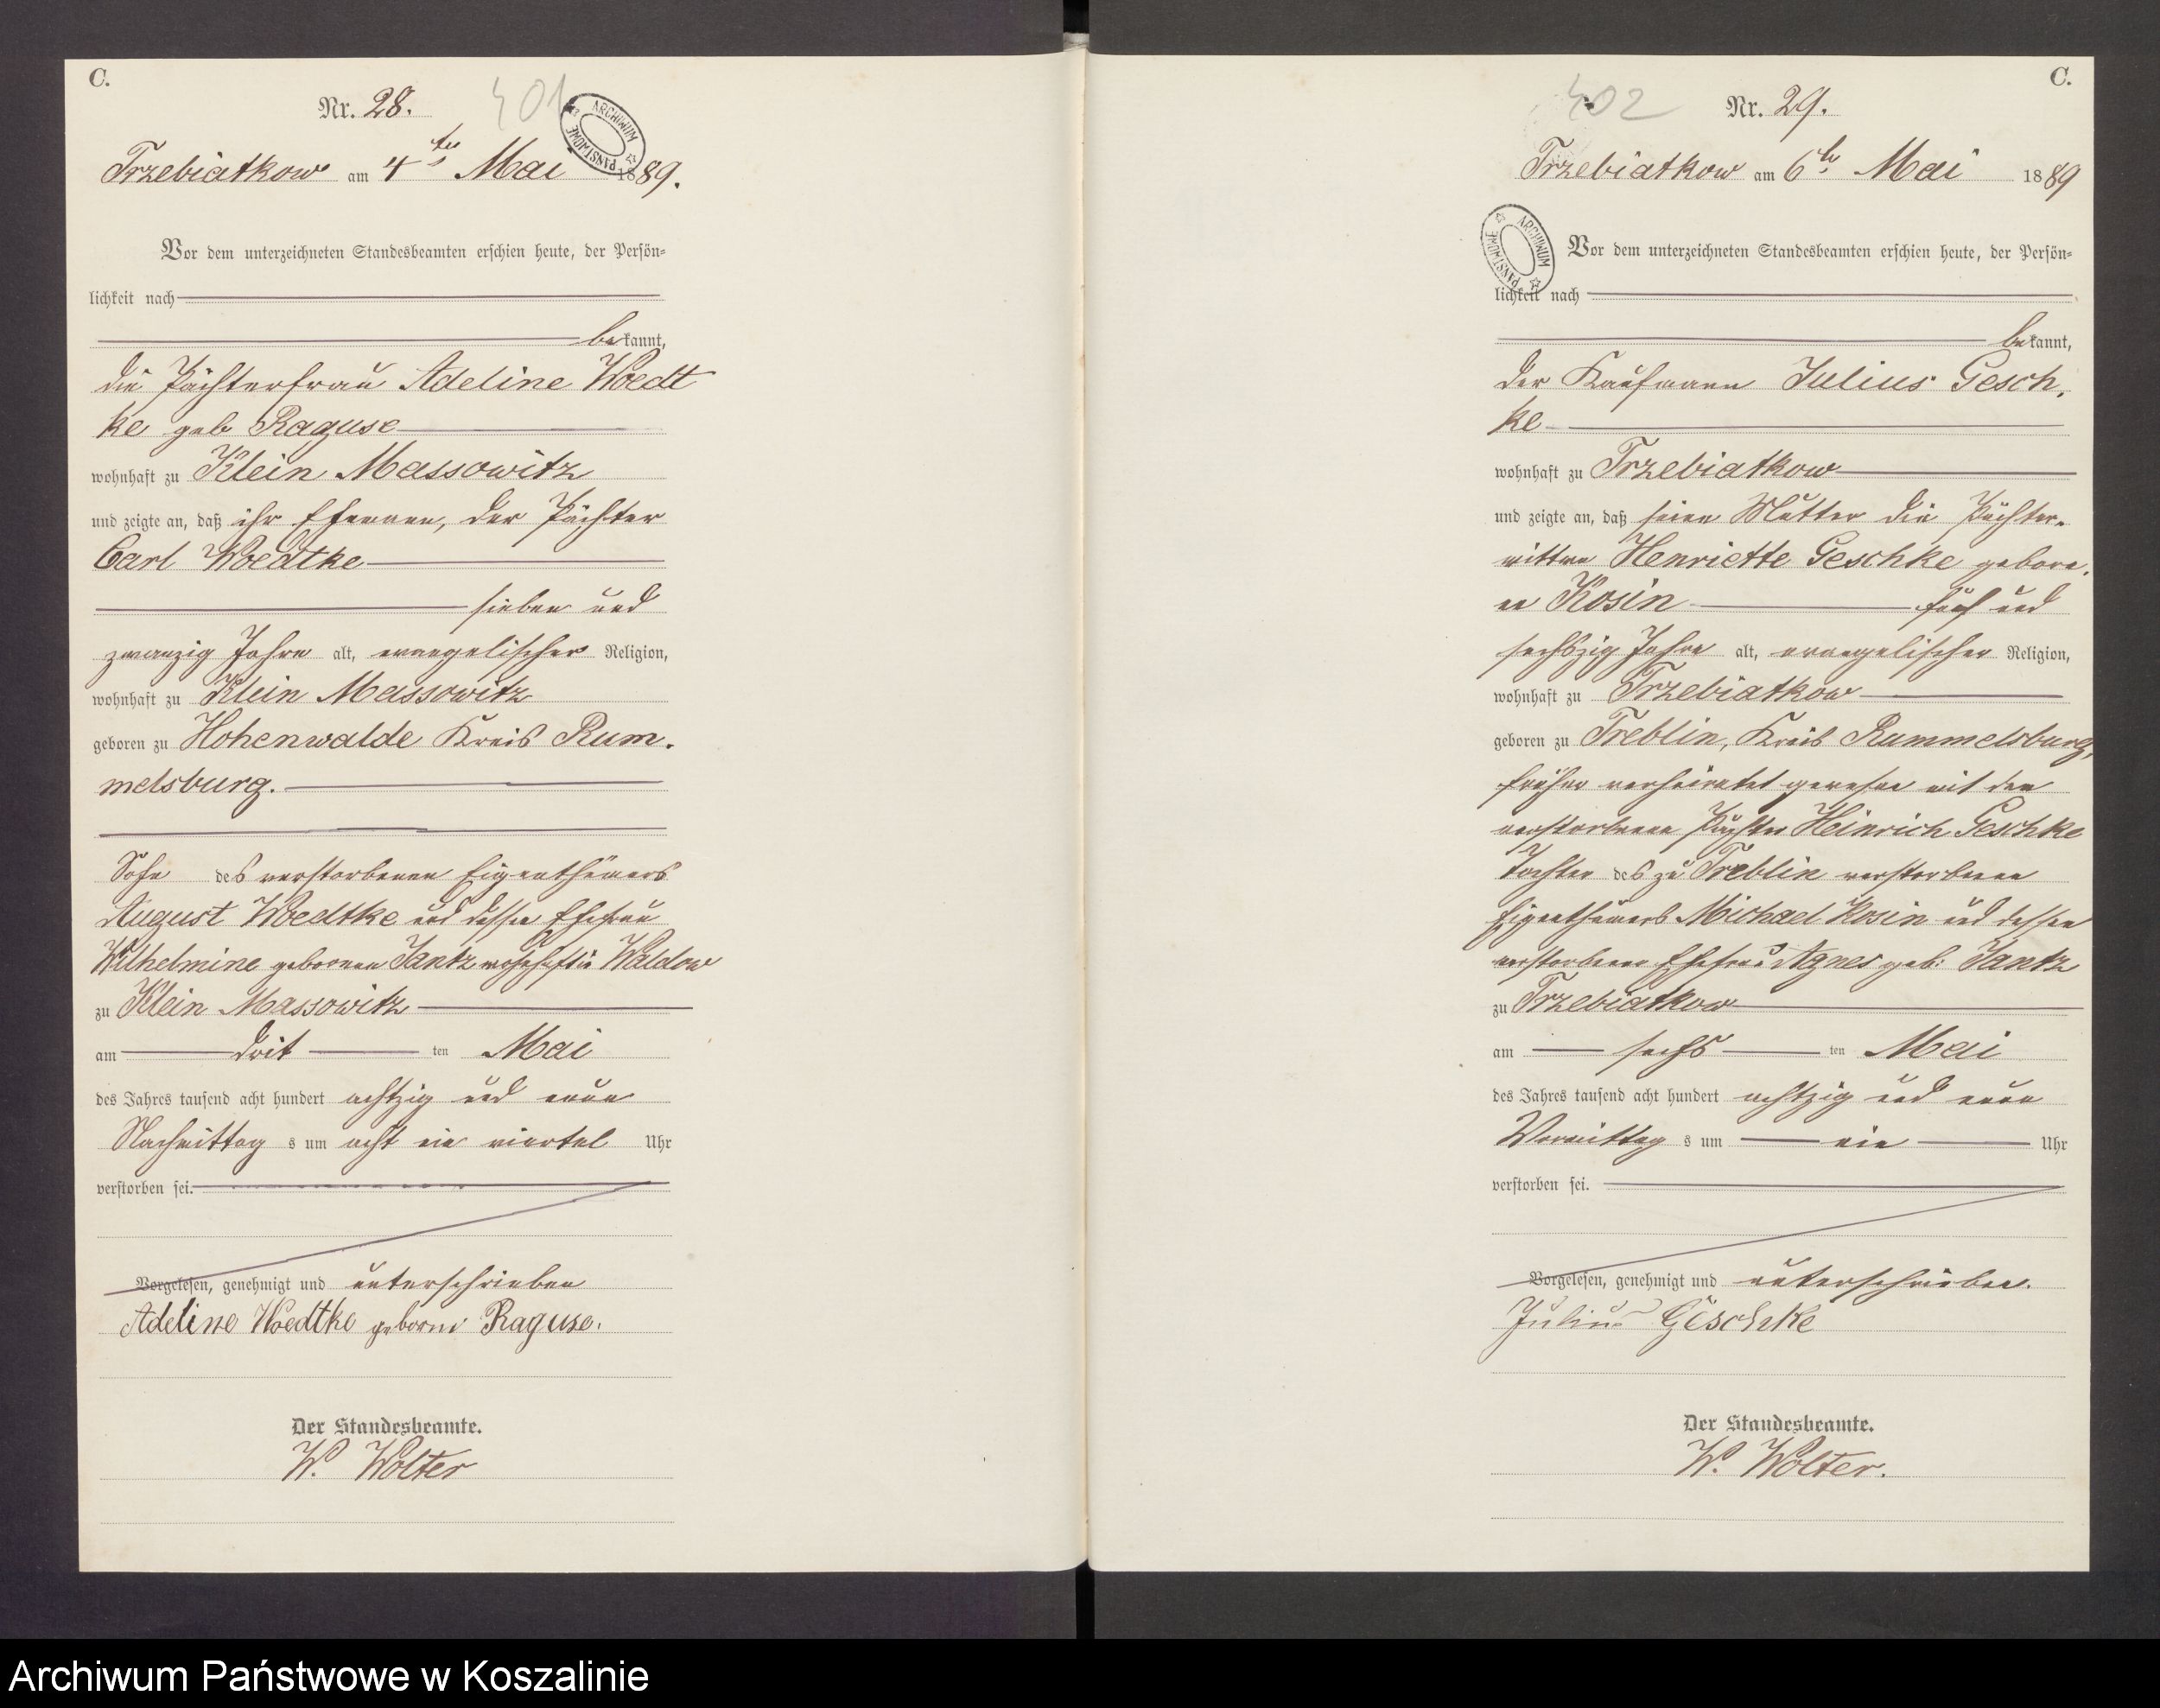 C.
Nr. 28.
401
ARCHIWUM PAŃSTWOWE
Trzebiatkow am 4ten Mai 1889.
Vor dem unterzeichneten Standesbeamten erschien heute, der Persön-
lichkeit nach
bekannt,
die Pächterfrau Adeline Woedt
ke geb Raguse
wohnhaft zu Klein Massowitz
und zeigte an, daß ihr Ehemann, der Pächter
Carl Woedtke
sieben und
zwanzig Jahre alt, evangelischer Religion,
wohnhaft zu Klein Massowitz
geboren zu Hohenwalde Kreis Rum-
melsburg.
Sohn des verstorbenen Eigenthümers
August Woedtke und dessen Ehefrau
Wilhelmine gebornen Jantz wohnhaft in Waldow
zu Klein Massowitz
am dritten Mai
des Jahres tausend acht hundert achtzig und neun
Nachmittags um acht ein viertel Uhr
verstorben sei.
Vorgelesen, genehmigt und unterschrieben
Adeline Woedtke geborne Raguse.
Der Standesbeamte.
W. Wolter
C.
402
Nr. 29.
Trzebiatkow am 6ten Mai 1889
ARCHIWUM PAŃSTWOWE
Vor dem unterzeichneten Standesbeamten erschien heute, der Persön-
lichkeit nach
bekannt,
der Kaufmann Julius Gesch-
ke
wohnhaft zu Trzebiatkow
und zeigte an, daß seine Mutter die Pächter-
wittwe Henriette Geschke gebore-
ne Kosin fünf und
sechszig Jahre alt, evangelischer Religion,
wohnhaft zu Trzebiatkow
geboren zu Treblin, Kreis Rummelsburg,
früher verheiratet gewesen mit dem
verstorbenen Pächter Heinrich Geschke
Tochter des zu Treblin verstorbenen
Eigenthümers Michael Kosin und dessen
verstorbenen Ehefrau Agnes geb: Jantz
zu Trzebiatkow
am sechsten Mai
des Jahres tausend acht hundert achtzig und neun
Vormittags um ein Uhr
verstorben sei.
Vorgelesen, genehmigt und unterschrieben.
Julius Geschke
Der Standesbeamte.
W. Wolter.
Archiwum Państwowe w Koszalinie